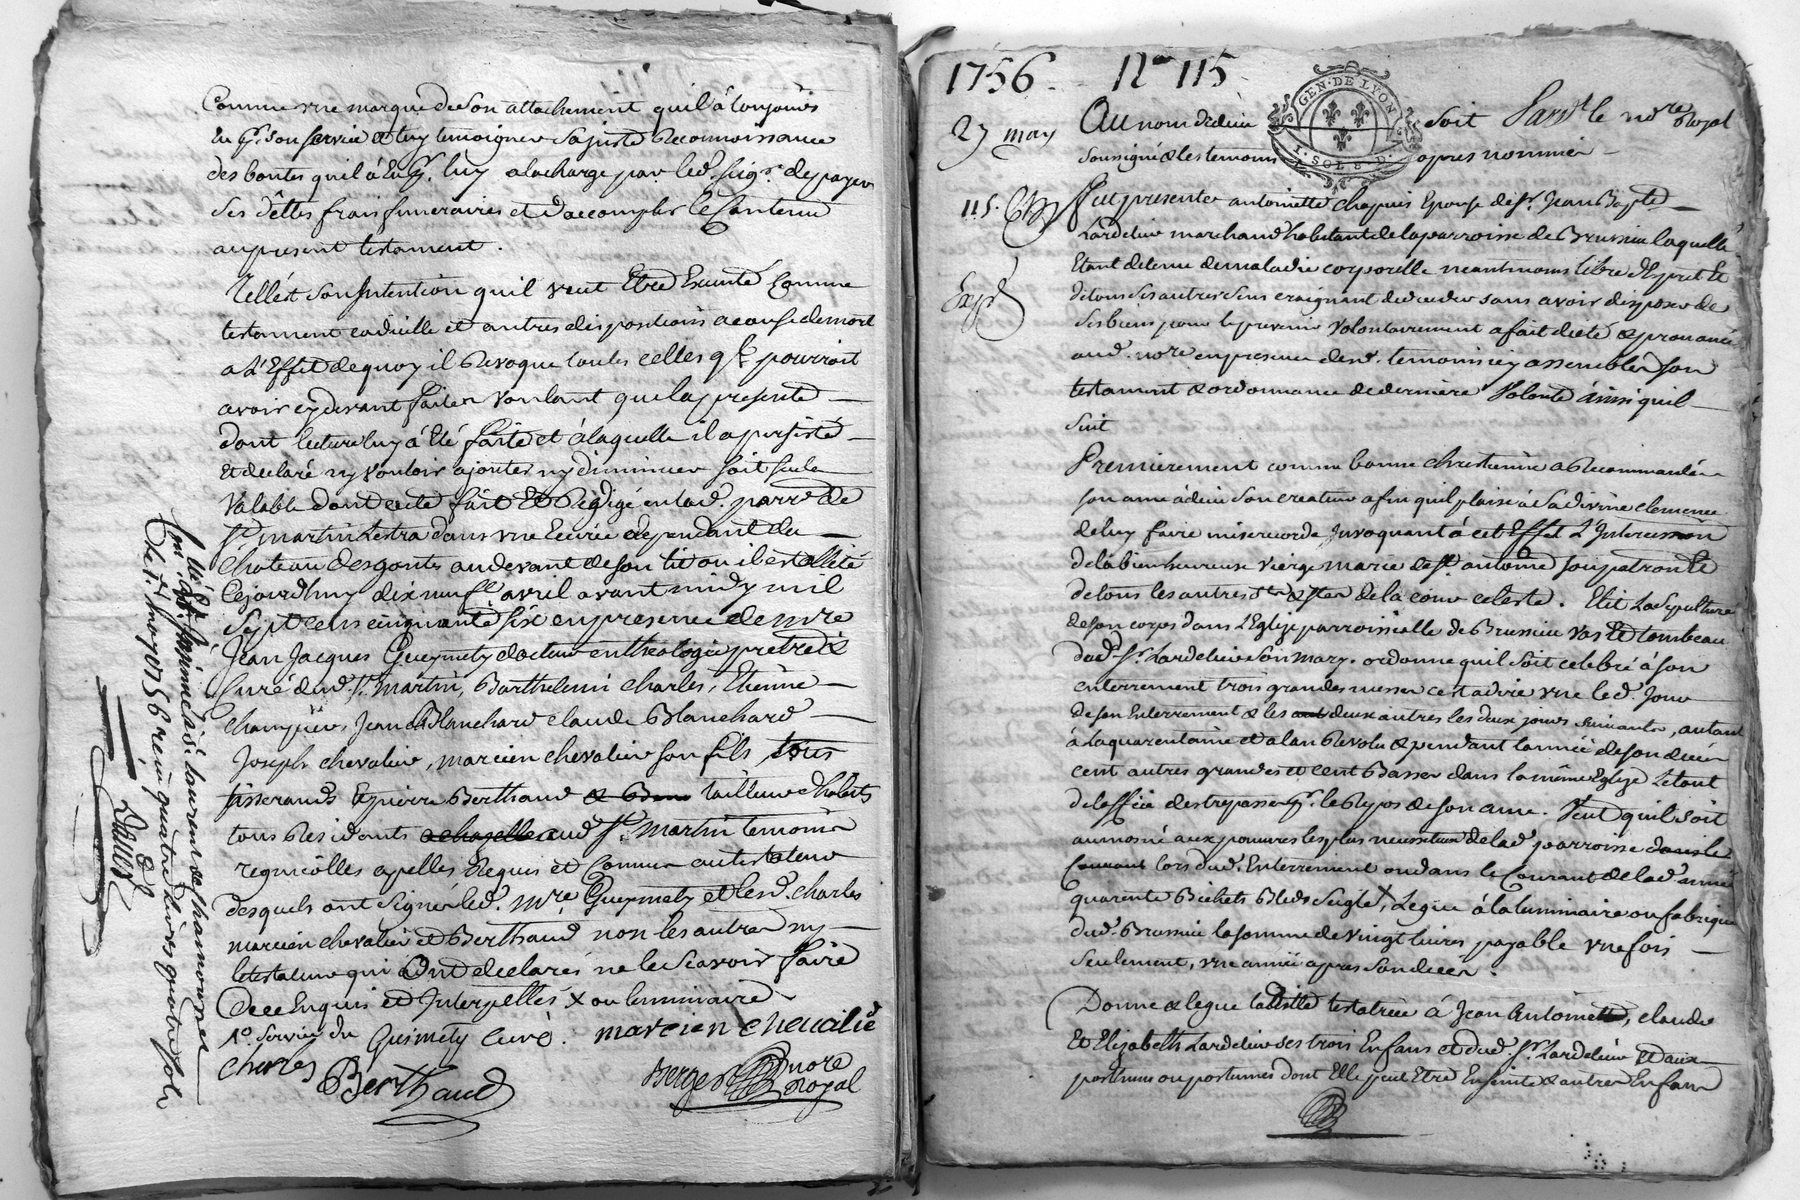 Comme une marque de son attachement qu'il à toujours
eu pr. son service et luy temoigner sa juste Reconnoissance
des bontés qu'il à eu pr. luy a la charge par led. seigr. de payer
ses dêttes frais funeraires et d'accomplir le Contenu
au present testament.
Telle est son Intention qu'il veut Etre Executé Comme
testament codicille et autres dispositions a cause de mort
a L'Effet de quoy il Revoque toutes celles ql. pourroit
avoir cy devant faites voulant que la presente
dont lecture luy à été faite et à laquelle il a persisté
et declaré n'y vouloir ajouter ny diminuer soit seule
Valable dont acte fait et Rédigé en lad. parre. de
St. martin Lestra dans une Ecurie dependant du
château desgouts au devant de son lit ou il est allité
Cejourd'huy dix neuf avril avant midy mil
sept cens cinquante six en presence de mre
Jean Jacques Gueymety docteur en theologie pretre et
Curé dud. St. martin, Barthelemi charles, Etienne
Jean Blanchard claude Blanchard
Joseph chevalier, marcien chevalier son fils tous
tisserands Et pierre Berthaud tailleur d'habits
tous Residents aud. St. Martin temoins
regnicolles apelles Requis et Connus au testateur
desquels ont signé led. mre. Gueymety et lesd. charles
marcien chevalier et Berthaud non les autres ny
le testateur qui ont declarés ne le scavoir faire
de ce Enquis et Interpellés x ou luminaire
Guimety curé. marcien chevalié
charles
Berthaud
Berger nore
Royal
le 7 may 1756 reçu quatre livres quatre sols
1756. No 115
27 may
Au nom de dieu soit Par dt. le nore Royal
GEN. DE LYON
1. SOL 8. D.
soussigné & les temoins apres nommés
115.
fut presente antoinette chapuis Epouse de sr. Jean Bapte
Lardelier marchand habitant de la parroisse de Brussieu laquelle
Etant detenue de maladie corporelle neantmoins libre d'Esprit Et
Expé
de tous ses autres sens craignant de deceder sans avoir disposer de
ses biens pour le prevenir volontairement a fait dicté & prononcé
aud. nore en presence desd. temoins icy assemblés son
testament & ordonnance de derniere Volonté ainsi qu'il
suit
Premierement comme bonne chretienne a Recommandé
son ame à dieu son createur afin qu'il plaise à sa divine clemence
de luy faire misericorde Invoquant à cet Effet L'Intercession
de la bienheureuse vierge marie de St. antoine son patron Et
de tous les autres sts & stes de la cour celeste. Elit La sepulture
de son corps dans l'Eglise parroissialle de Brussieu vas Et tombeau
dud. sr. Lardelier son mary. ordonne qu'il soit celebré à son
enterrement trois grandes messes cest a dire une led. Jour
de son Enterrement & les deux autres les deux jours suivants, autant
à la quarentaine et a lan Revolu & pendant lannée de son deces
cent autres grandes et cent Basses dans la même Eglise Le tout
de loffice des trepasses pr. le Repos de son ame. Veut qu'il soit
aumoné aux pauvres les plus necessiteux de lad. parroisse
lors dud. Enterrement ou dans le Courant de lad. année
quarente Bichets Bleds Seigle, Legue à la luminaire ou fabrique
dud. Brussieu la somme de vingt livres payable une fois
seulement, une année apres son deces.
Donne & legue ladite testatrice à Jean Antoine, claude
Et Elizabeth Lardelier ses trois Enfans et dud. sr. Lardelier Et aux
posthume ou postumes dont Elle peut Etre Enceinte & autres Enfans